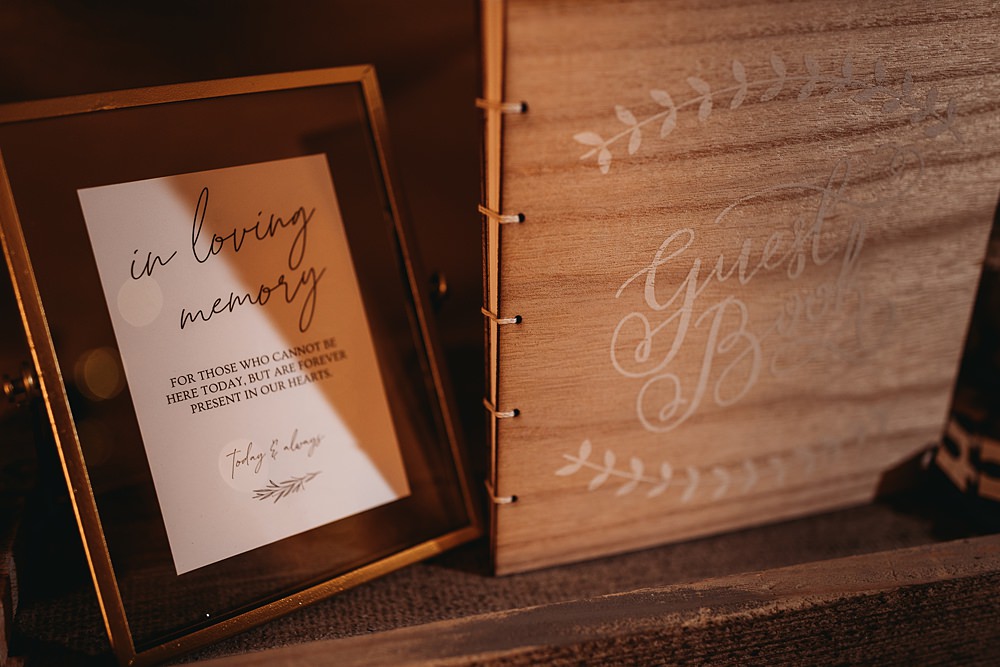 in loving
memory
FOR THOSE WHO CANNOT BE
HERE TODAY, BUT ARE FOREVER
PRESENT IN OUR HEARTS.
Today & always
Guest
Book